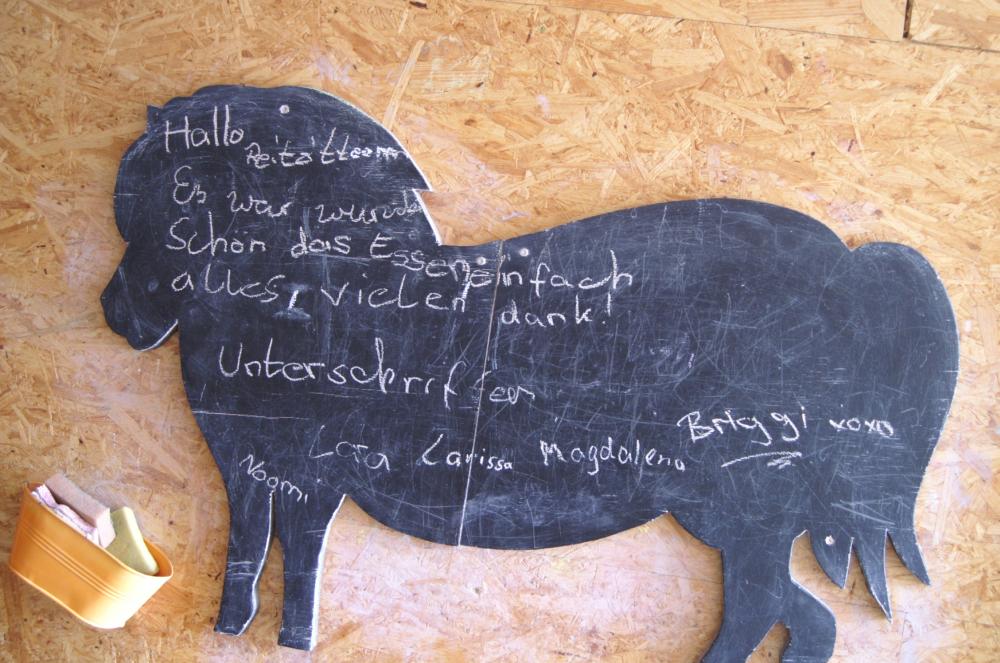 Hallo
Es war wunder
Schön das Essen einfach
alles, vielen dank!
Unterschriften
Naomi Lara Larissa Magdalena Briggi xoxo